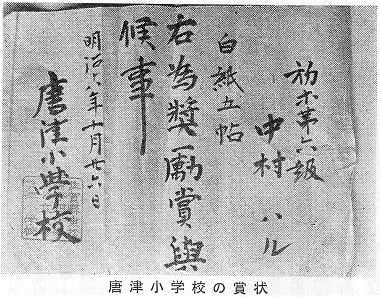 初等第六級
中村ハル
白紙五帖
右為奬勵賞與
候事
明治十八年十月廿六日
唐津小學校
唐津小学校の賞状